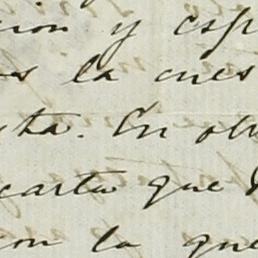 cion y esp
os la cues
cha. En otr
carta que
con lo que